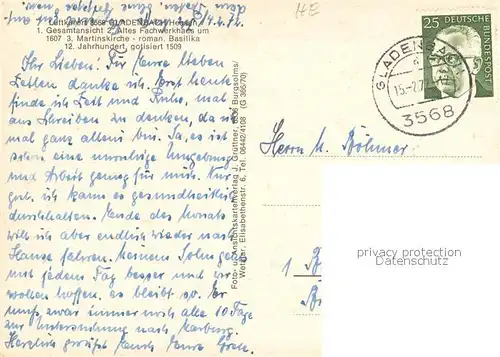 HE
Luftkurort 3568 GLADENBACH/Hessen
1. Gesamtansicht 2. Altes Fachwerkhaus um
1607 3. Martinskirche - roman. Basilika
12. Jahrhundert, gotisiert 1509
14.2.72.
Ihr Lieben. Für Eure lieben
Zeilen danke ich. Erst heute
finde ich Zeit und Ruhe, mal
ans Schreiben zu denken, da
mal ganz allein bin. Ja, es ist
schon eine unruhige Umgebung
und Arbeit genug für mich. Nur
gut, ich kann es gesundheitlich
durchhalten. Ende des Monats
will ich aber endlich wieder nach
Hause fahren. Meinem Sohn geht
mit jedem Tag besser und wir
wollen hoffen, es bleibt so. Er
muß zwar immer noch alle 10 Tage
zur Untersuchung nach Marburg.
Herzlich grüßt Euch Eure Grete.
Foto- u. Ansichtskartenverlag J. Gruttner, 6336 Burgsolms/
Wetzlar, Elisabethenstr. 6, Tel. 06442/4108 (G 386/70)
25 DEUTSCHE
BUNDESPOST
GLADENBACH
15.-2.72
3568
Herrn u. Böhmer
1 B
privacy protection
Datenschutz